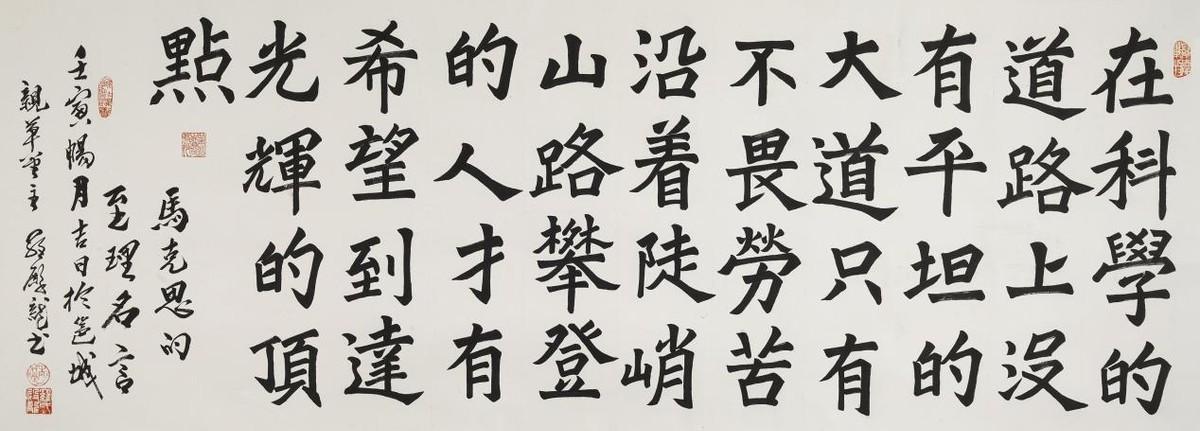 在科學的
道路上没
有平坦的
大道只有
不畏勞苦
沿着陡峭
山路攀登
的人才有
希望到達
光輝的頂
點
馬克思的
至理名言
壬寅暢月吉日於邕城
親草堂主
書